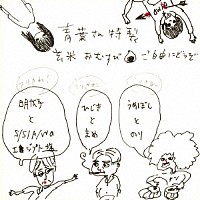 青葉さん特製
玄米おむすび ご自由にどうぞ
明太子
と
S/S/A/Wの
エジプト塩
ひじき
と
まめ
うめぼし
と
のり